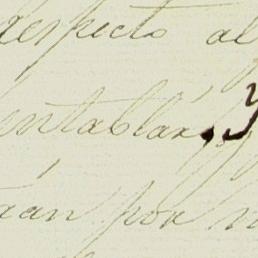 respecto al
entablar, y
rán por